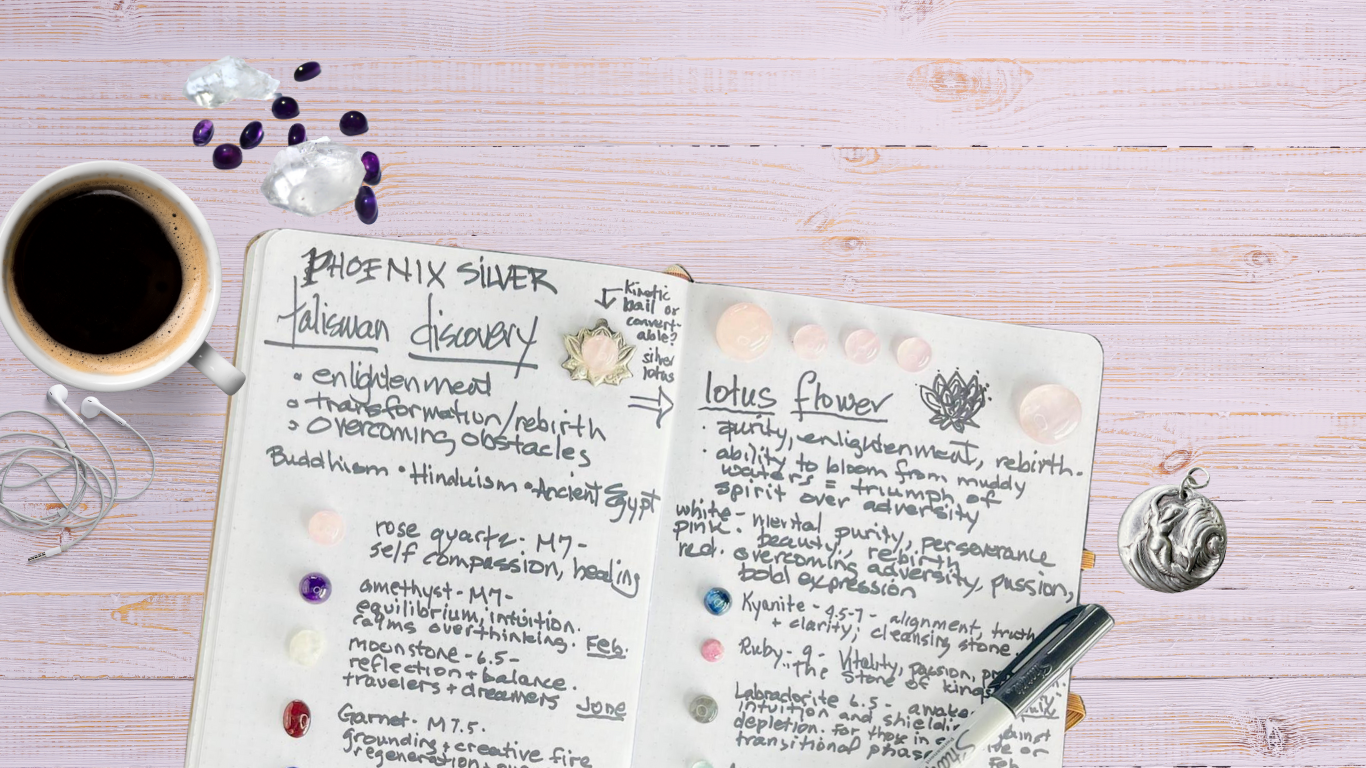 PHOENIX SILVER
talisman discovery
• enlightenment
• transformation/rebirth
• overcoming obstacles
Buddhism • Hinduism • Ancient Egypt
kinetic
bail or
convert-
able?
silver
lotus
rose quartz - M7 -
self compassion, healing
amethyst - M7 -
equilibrium, intuition.
calms overthinking. Feb.
moonstone - 6.5 -
reflection + balance.
travelers + dreamers June
Garnet - M7.5.
grounding + creative fire
regeneration +
lotus flower
• purity, enlightenment, rebirth.
• ability to bloom from muddy
waters = triumph of
spirit over adversity
white - mental purity, perseverance
pink - beauty, rebirth
red. overcoming adversity, passion,
bold expression
Kyanite - 4.5-7 - alignment, truth
+ clarity; cleansing stone.
Ruby - 9 - Vitality, passion,
"the stone of
Labradorite 6.5 -
intuition and
depletion. for those in
transitional
Feb